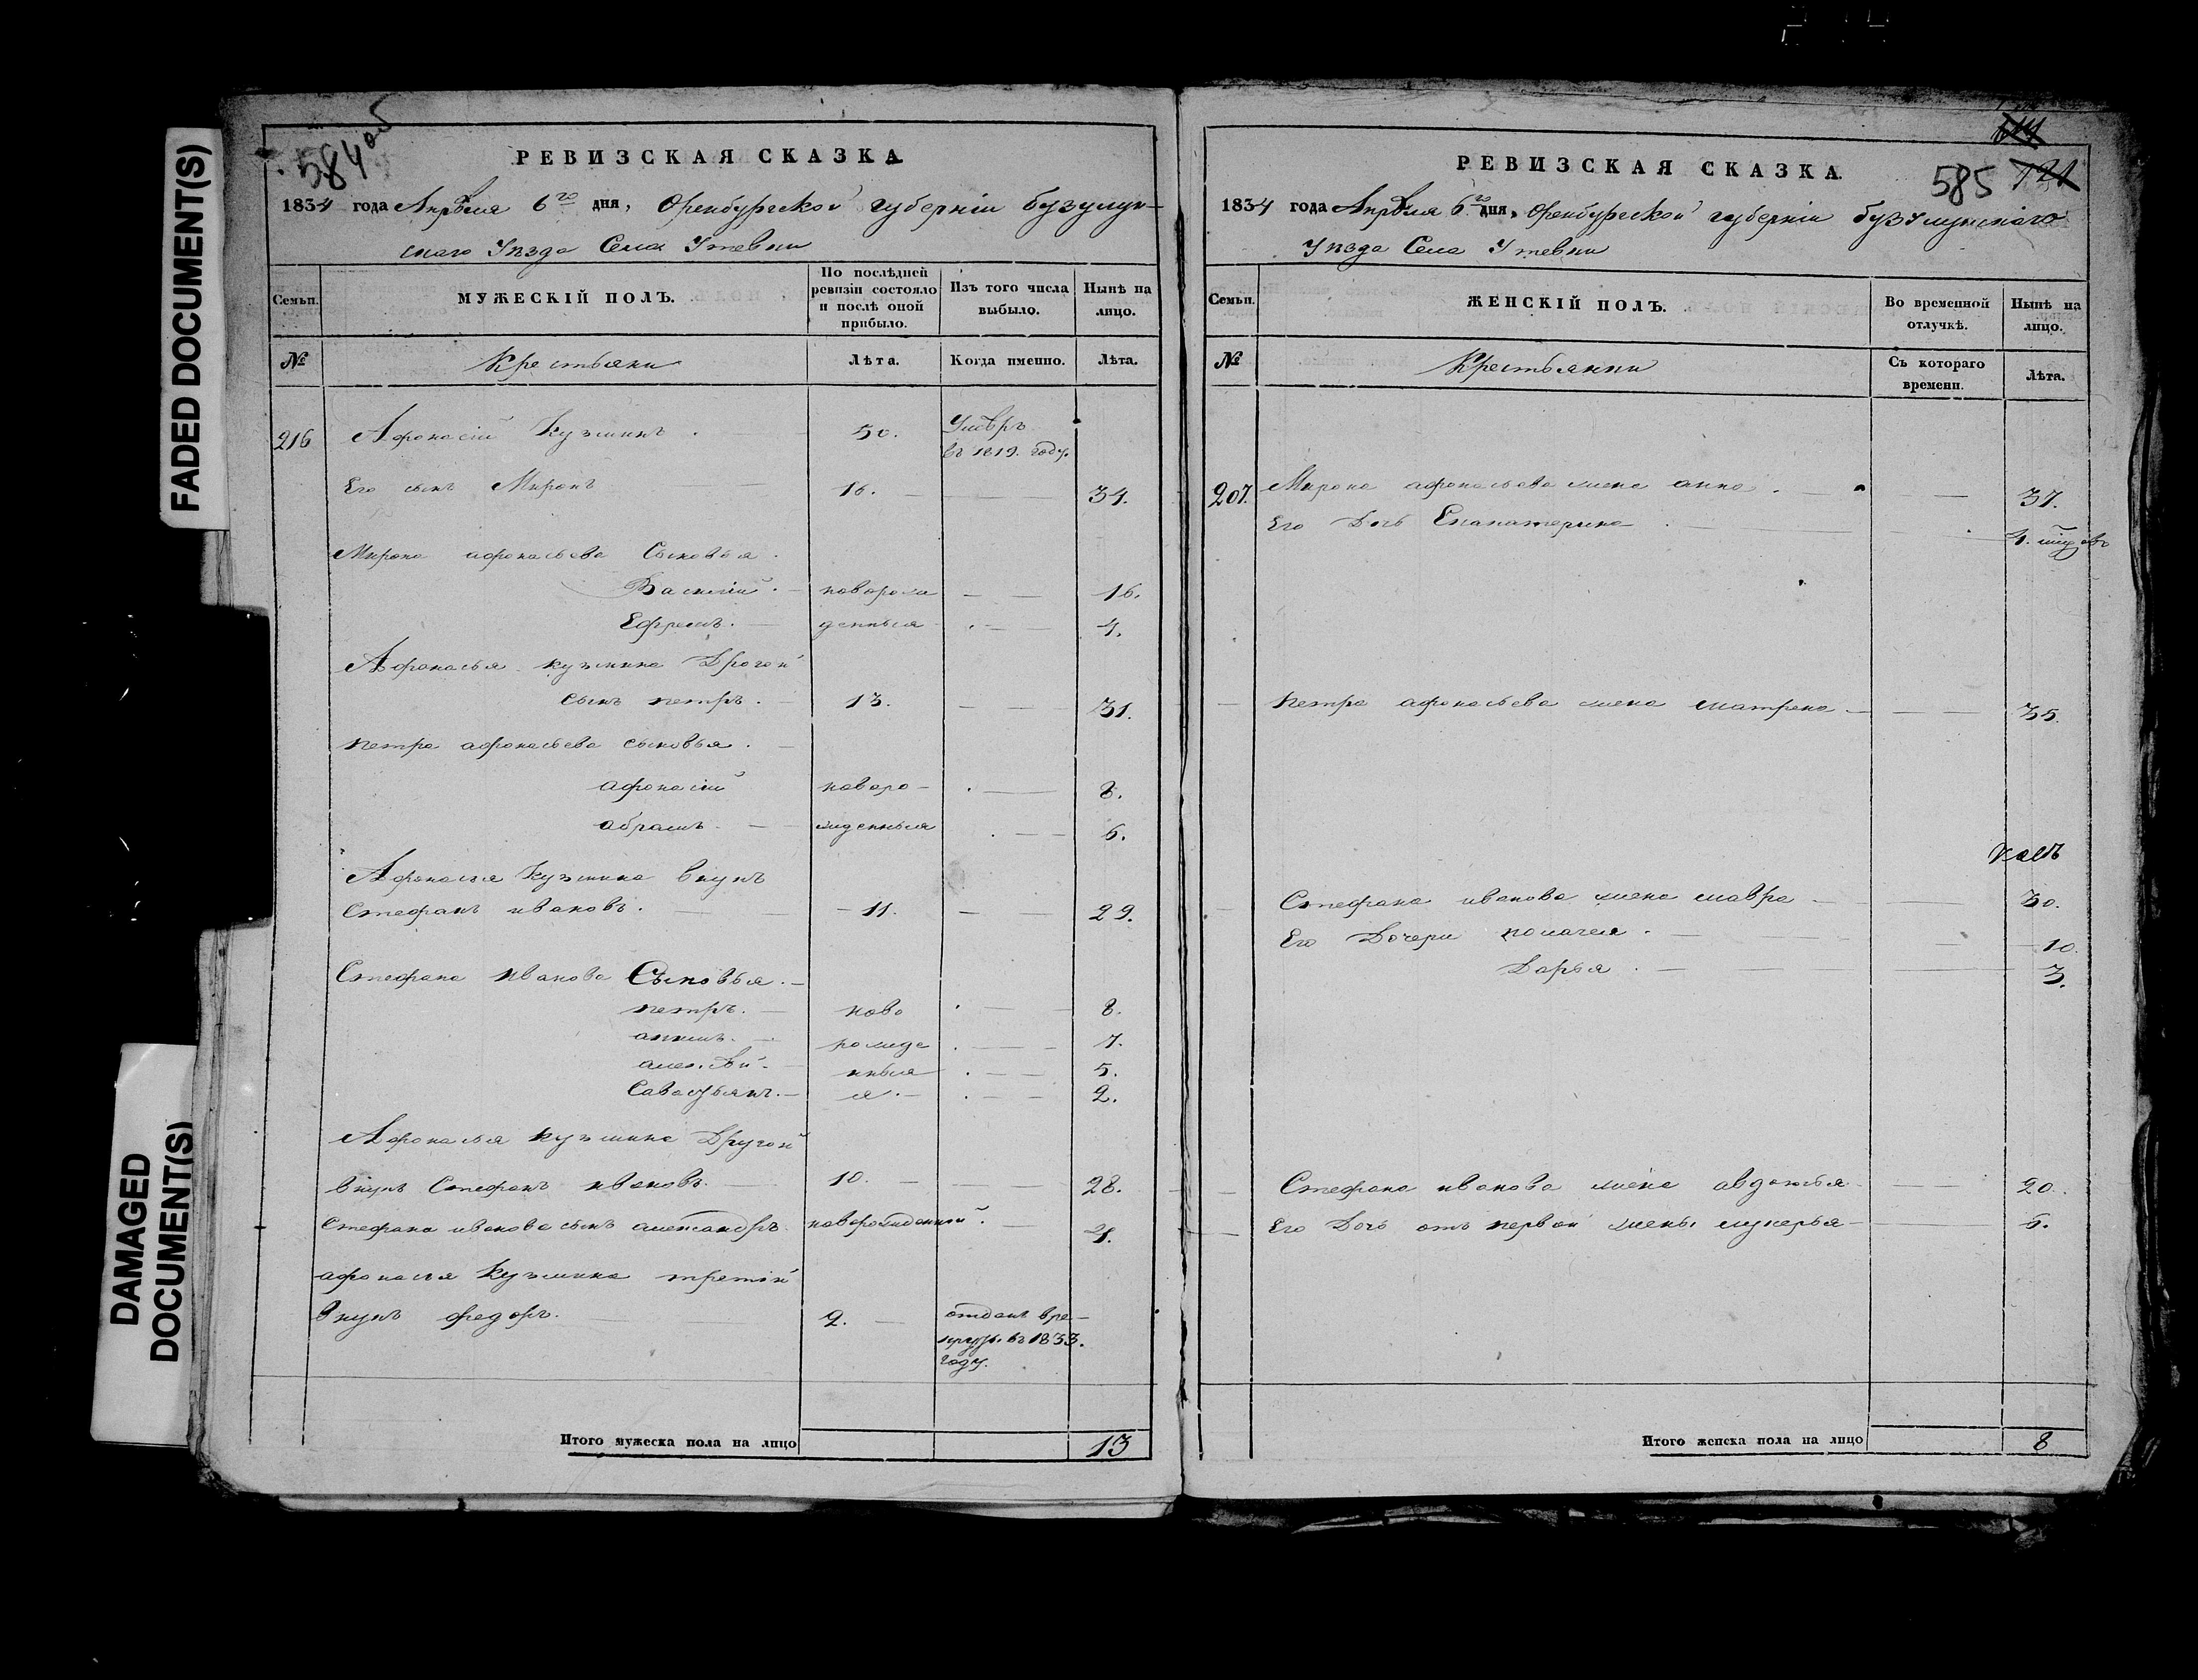 FADED DOCUMENT(S)
DAMAGED
DOCUMENT(S)
584 об
РЕВИЗСКАЯ СКАЗКА
1834 года Апреля 6го дня, Оренбургской губерніи бузулук-
скаго Уезда Села Утевки
Семьи.
МУЖЕСКІЙ ПОЛЪ.
По послѣдней ревизіи состояло и послѣ оной прибыло.
Изъ того числа выбыло.
Нынѣ на лицо.
№
Крестьяни
Лѣта.
Когда именно.
Лѣта.
216 Афонасій Кузминъ. 50. Умѣръ
въ 1819. году.
Его сынъ Миронъ 16. 34.
Мирона афонасьева Сыновья.
Василій. новорож 16.
Ефремъ. денныя 4.
Афонасья кузмина Другой
сынъ петръ. 13. 31.
петра афонасьева сыновья.
афонасій новоро- 8.
абрамъ. жденныя 6.
Афонасья Кузмина внукъ
Стефанъ ивановъ. 11. 29.
Стефана Иванова Сыновья.
петръ. ново 8.
рожде 7.
нныя 5.
Савастьянъ. я. 2.
Афонасья кузмина Другой
внукъ Стефанъ ивановъ. 10. 28.
Стефана иванова сынъ александръ. новорожденный. 4.
афонасья Кузмина третій
внукъ федоръ. 2. отданъ вре-
круты въ 1833.
году.
Итого мужеска пола на лицо 13
РЕВИЗСКАЯ СКАЗКА.
585
1834 года Апреля 6го дня, Оренбургской губерніи бузулуцкаго
Уезда Села Утевки
Семьи.
ЖЕНСКІЙ ПОЛЪ.
Во временной отлучкѣ.
Нынѣ на лицо.
№
Крестьянки
Съ котораго времени.
Лѣта.
207. Мирона афонасьева жена анна. 37.
Его Дочь Екакатерина.
петра афонасьева жена матрена 35.
Стефана иванова жена мавра 30.
Его Дочери 10.
Дарья. 3.
Стефана иванова жена авдотья 20.
Его Дочь отъ первой жены лукерья 6.
Итого женска пола на лицо 8